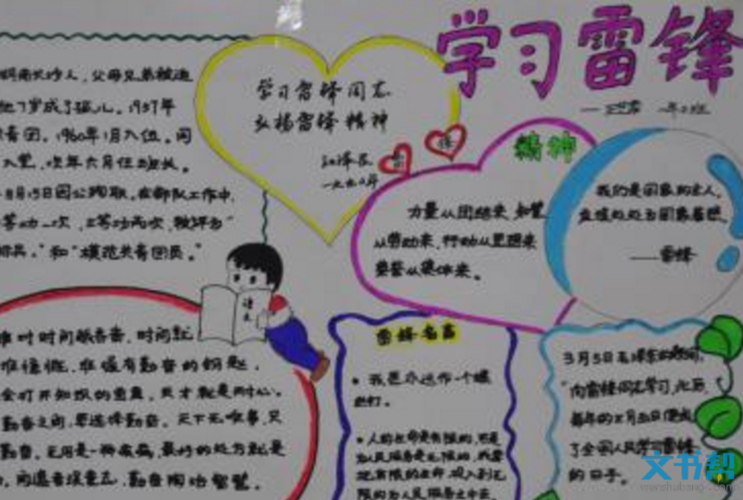 学习雷锋
精神
学习雷锋同志
弘扬雷锋精神
江泽民
湖南长沙人，父母兄弟被迫
他7岁成了孤儿。1957年
青团。1960年1月入伍。同
入党，次年六月任班长。
8月15日因公殉职。在部队工作中，
等功一次，三等功两次，被评为"
标兵。"和"模范共青团员。"
力量从团结来，智慧
从劳动来，行动从思想来
荣誉从集体来。
我们是国家的主人，
应该处处为国家着想。
——雷锋
雷锋名言
• 我愿永远作一个螺
丝钉。
• 人的生命是有限的，可是
为人民服务是无限的，我要
把有限的生命，投入到无
限的为人民服务之中去
3月5日毛泽东的
"向雷锋同志学习，此后，
每年的三月五日便成
了全国人民学习雷锋
的日子。
谁对时间越吝啬，时间就
谁慷慨，谁握有勤奋的钥匙，
会打开知识的宝盒，天才就是
勤奋之间，要选择勤奋。天下无难事，只
最好的处方就是
勤奋陶冶智慧。
语文
文书帮